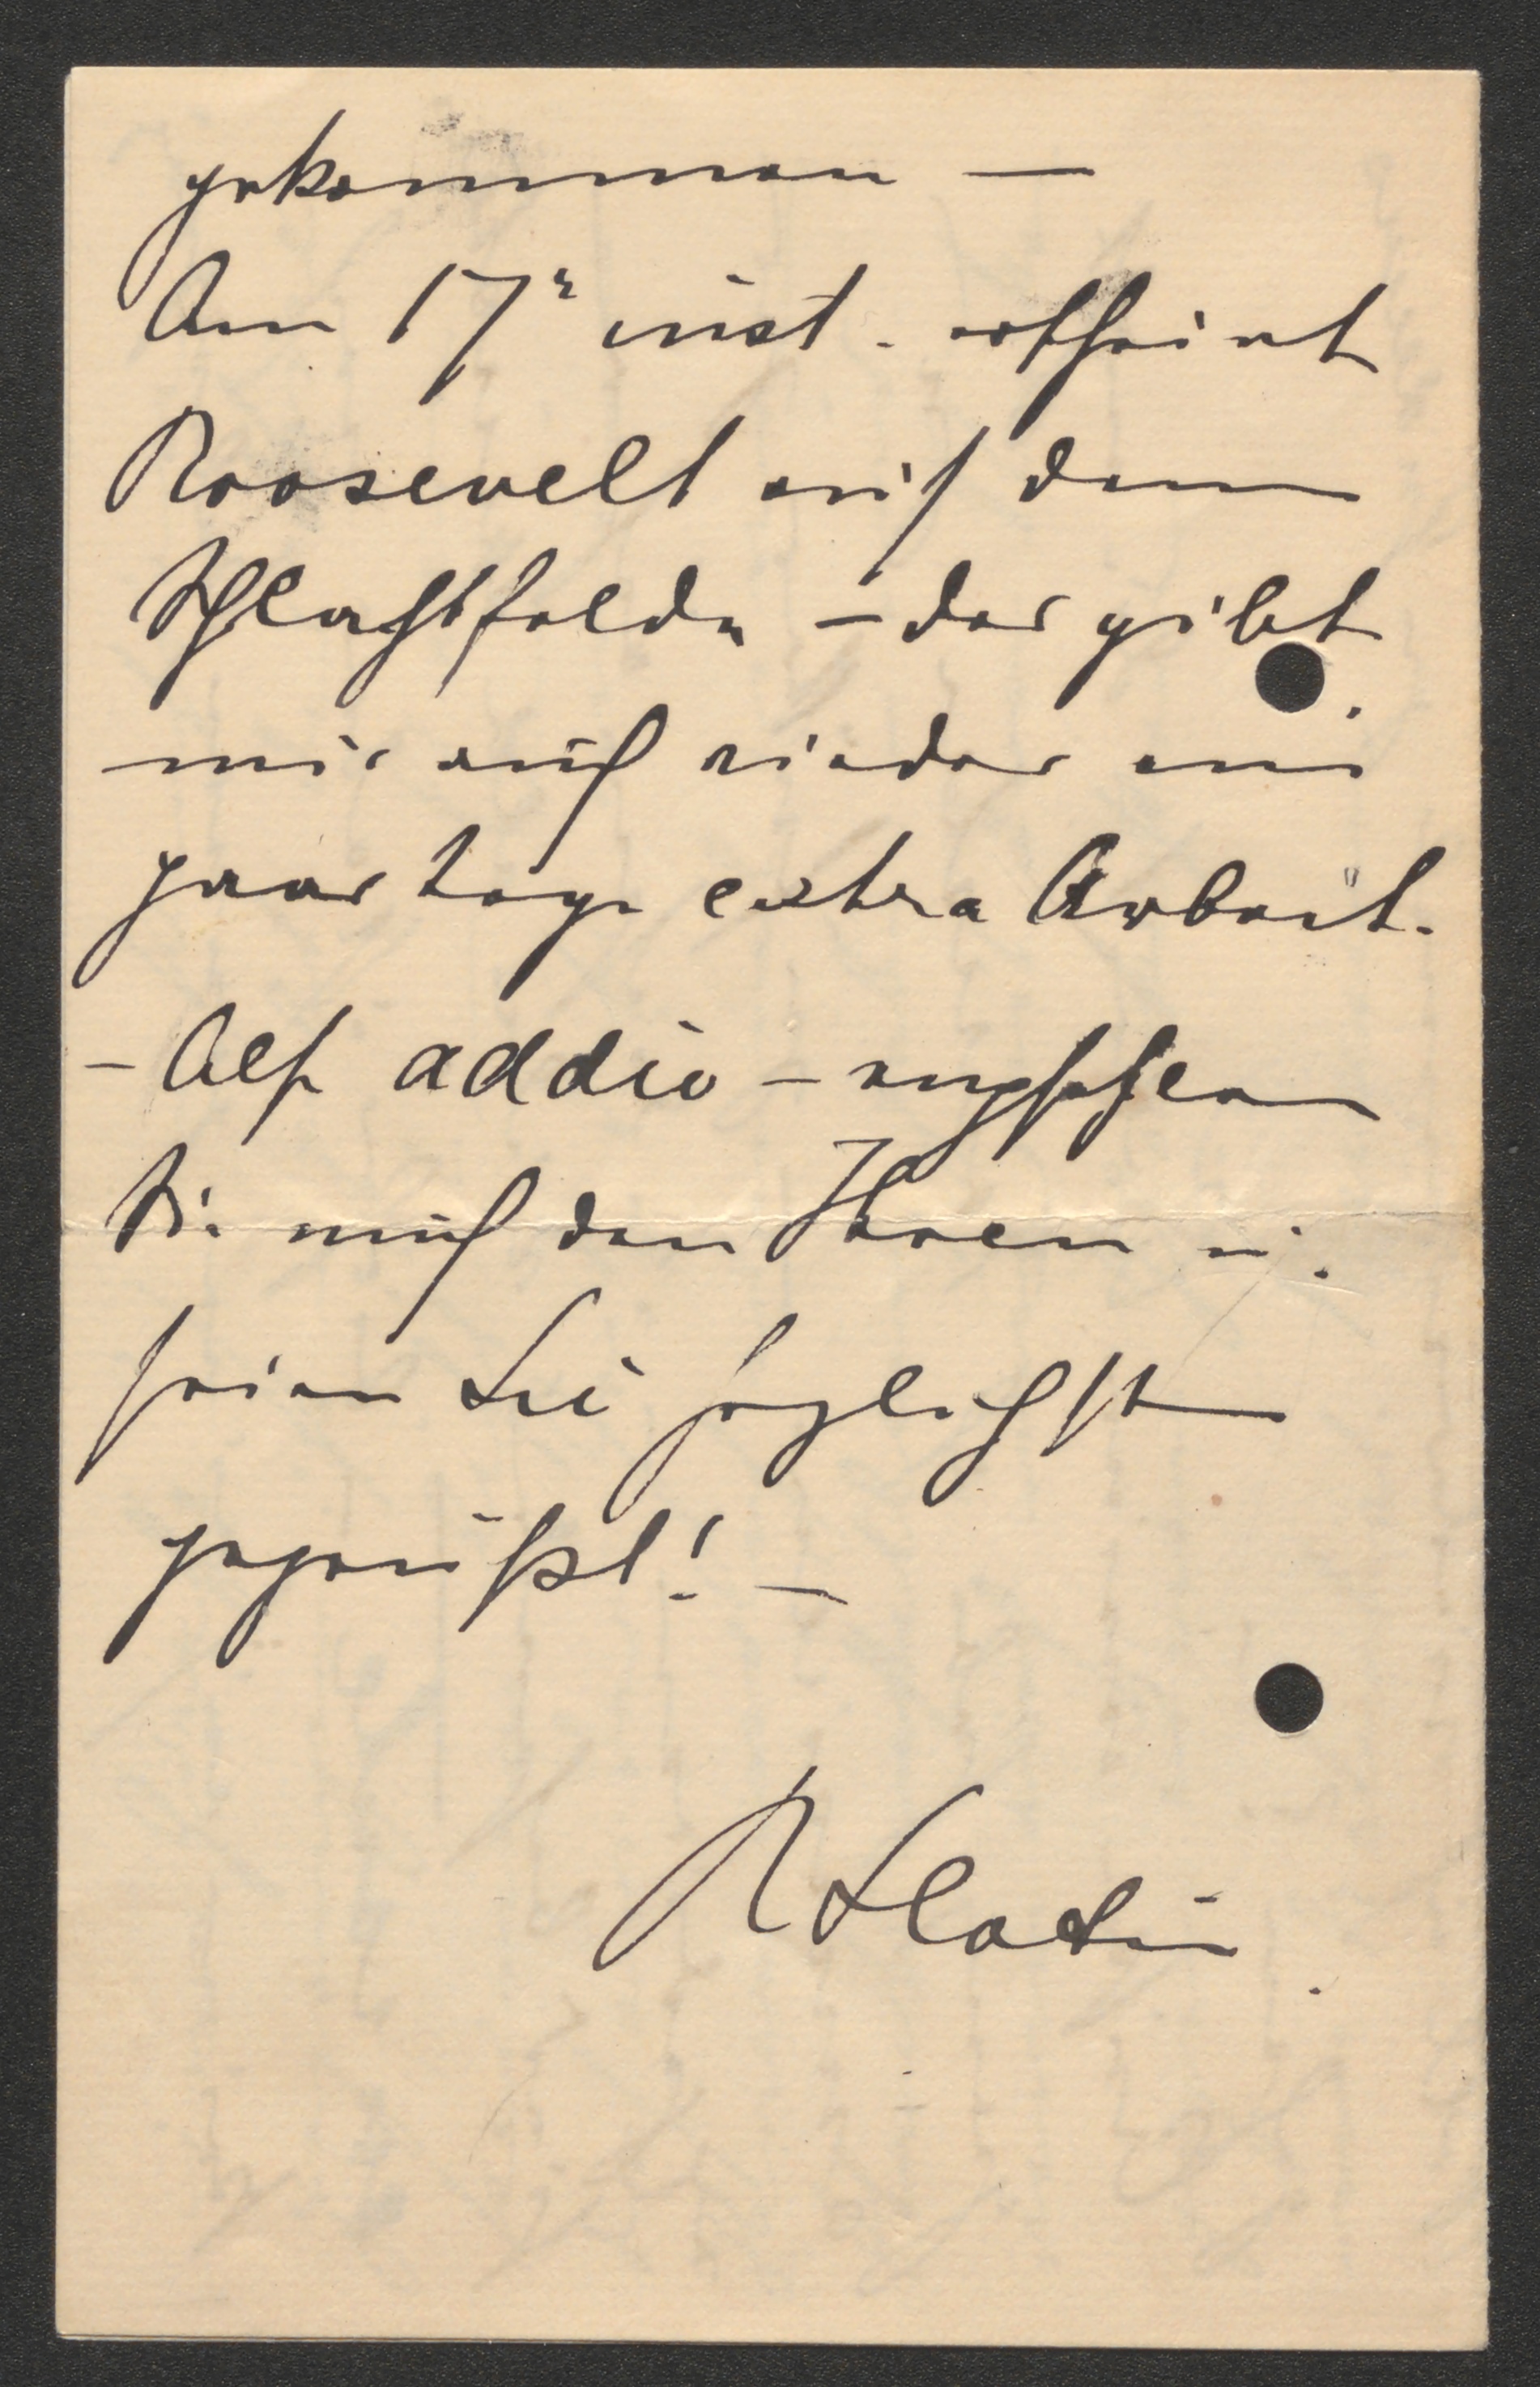 gekommen —
Am 17ⁿ inst. erscheint
Roosevelt auf dem
Schlachtfelde – das gibt
mir auch wieder ein
paar Tage extra Arbeit.
– Also addio – empfehlen
Sie mich den Ihren u.
seien Sie herzlichst
gegrüßt! —
R Slatin